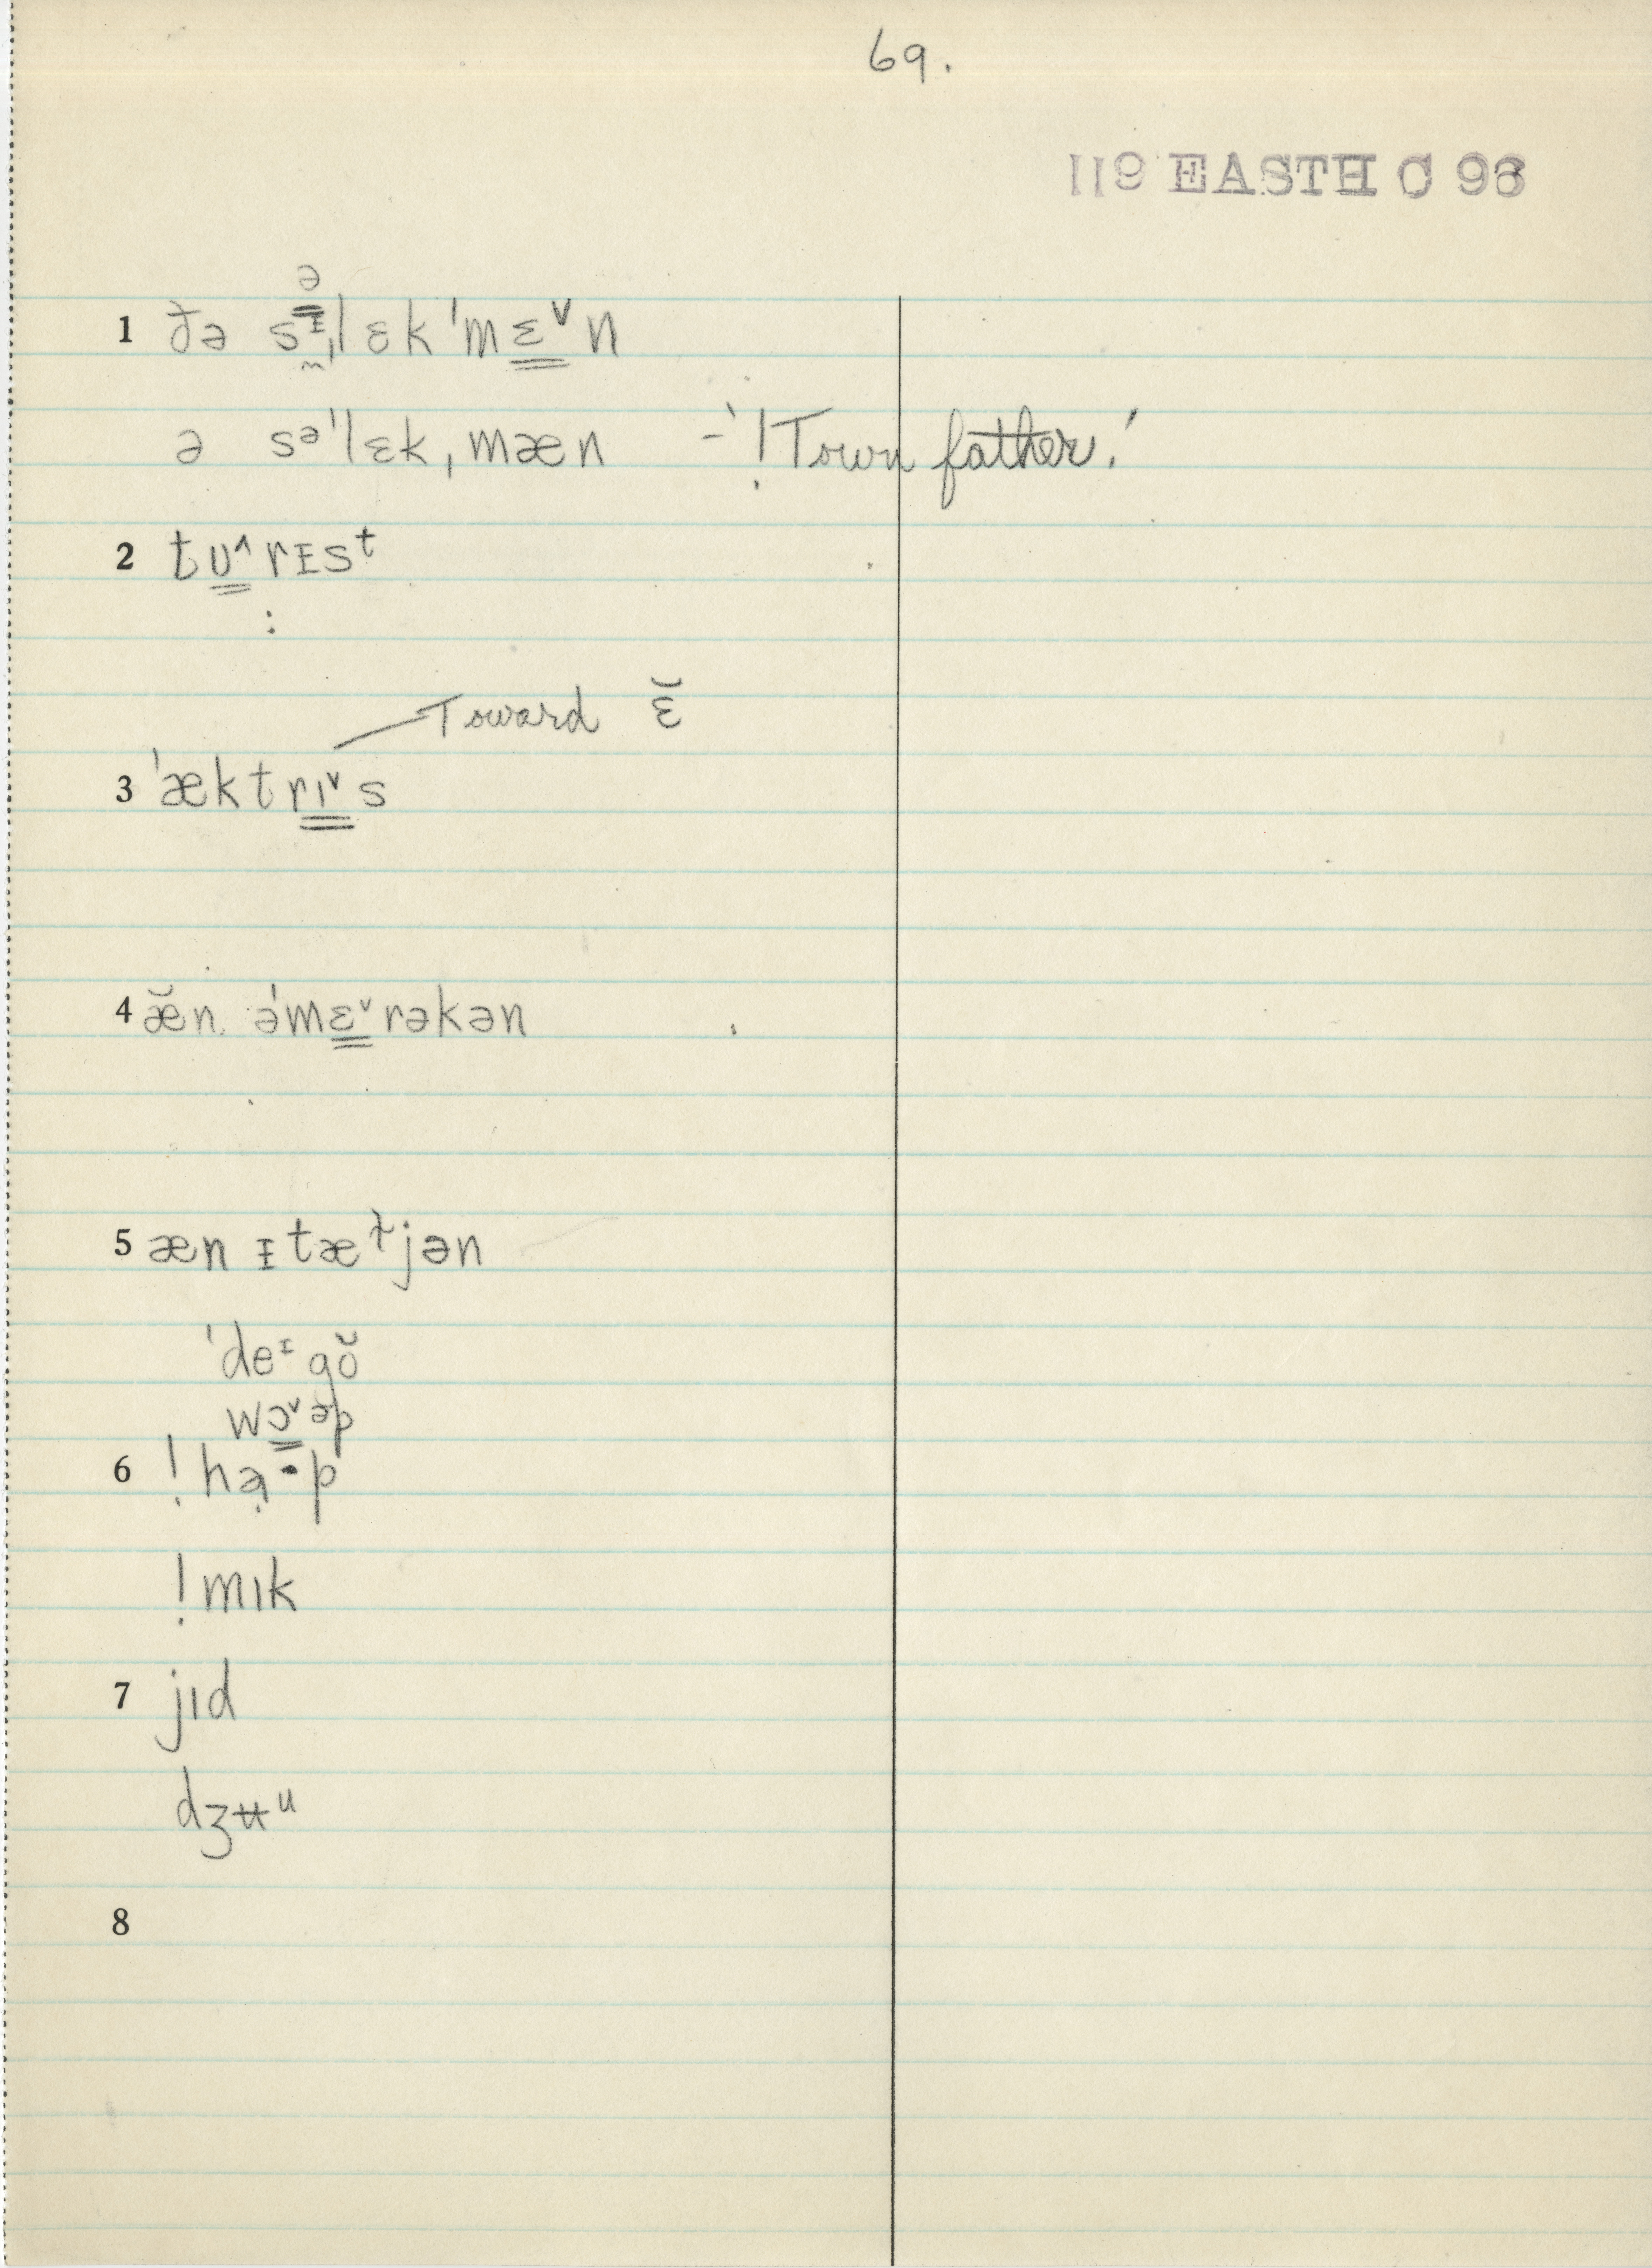 69.
119 EASTH C 96
ə
1 ðə sɪ̰ˌlɛkˈmɛ̳ˇn
ə səˈlɛkˌmæn -'!Town father.'
2 tʊ̳^rɪsᵗ
:
Toward ɛ̆
3 ˈæktrɪ̳ˇs
4 æ̆n əˈmɛ̳ˇrəkən
5 æn ɪtæɫjən
ˈdeᶦgŏ
wɔ̳ˇəp
6 !hạ·p
!mık
7 jıd
dʒʉᵘ
8